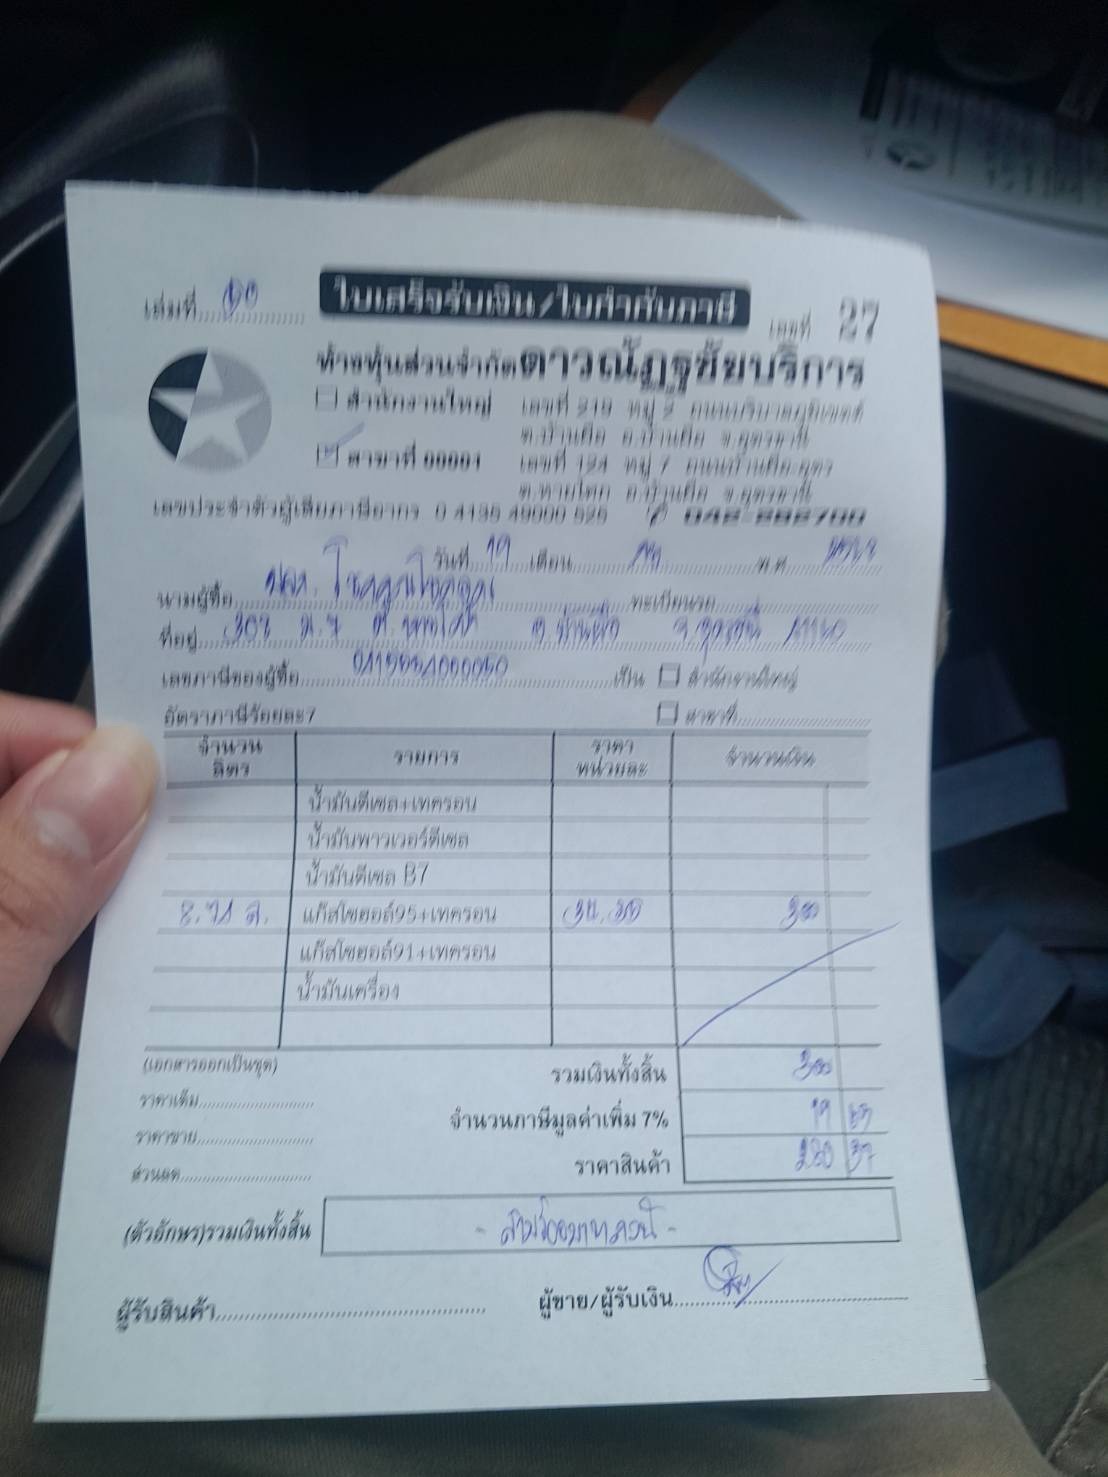 เล่มที่
ใบเสร็จรับเงิน/ใบกำกับภาษี
เลขที่ 27
ห้างหุ้นส่วนจำกัดดาวณัฏฐชัยบริการ
สำนักงานใหญ่ เลขที่ 219 หมู่ 2
ต.บ้านผือ อ.บ้านผือ จ.อุดรธานี
สาขาที่ 00001 เลขที่ 124 หมู่ 7 ถนนบ้านผือ-อุดร
ต.หายโศก อ.บ้านผือ จ.อุดรธานี
เลขประจำตัวผู้เสียภาษีอากร 0 4135 49000 525
วันที่ 19 เดือน พ.ศ.
นามผู้ซื้อ ทะเบียนรถ
ที่อยู่ 307 ม.7 ต.หายโศก อ.บ้านผือ จ.อุดรธานี
เลขภาษีของผู้ซื้อ เป็น สำนักงานใหญ่
อัตราภาษีร้อยละ7 สาขาที่
จำนวนลิตร รายการ ราคาหน่วยละ จำนวนเงิน
น้ำมันดีเซล+เทครอน
น้ำมันพาวเวอร์ดีเซล
น้ำมันดีเซล B7
แก๊สโซฮอล์95+เทครอน 300
แก๊สโซฮอล์91+เทครอน
น้ำมันเครื่อง
(เอกสารออกเป็นชุด) รวมเงินทั้งสิ้น 300
ราคาเต็ม
จำนวนภาษีมูลค่าเพิ่ม 7% 19 63
ราคาขาย
ราคาสินค้า 280 37
ส่วนลด
(ตัวอักษร)รวมเงินทั้งสิ้น - สามร้อยบาทถ้วน -
ผู้รับสินค้า ผู้ขาย/ผู้รับเงิน